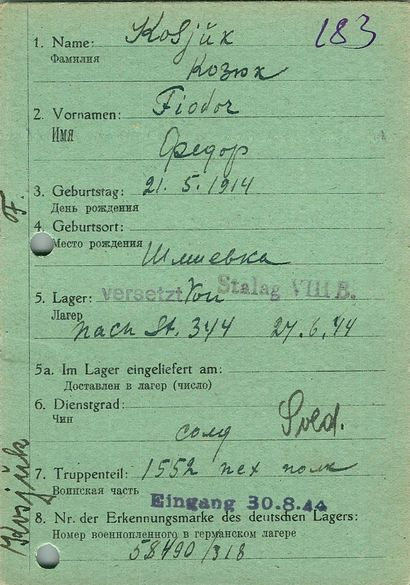 183
1. Name: Kosjük
Фамилия
Козюк
2. Vornamen: Fiodor
Имя
Федор
3. Geburtstag: 21. 5. 1914
День рождения
4. Geburtsort:
Место рождения
5. Lager: versetzt Von Stalag VIII B.
Лагерь
nach St. 344 27.6.44
5a. Im Lager eingeliefert am:
Доставлен в лагерь (число)
6. Dienstgrad:
Чин
солд Sold.
7. Truppenteil: 1552 пех полк
Воинская часть
Eingang 30.8.44
8. Nr. der Erkennungsmarke des deutschen Lagers:
Номер военнопленного в германском лагере
58490/318
Kosjük F.